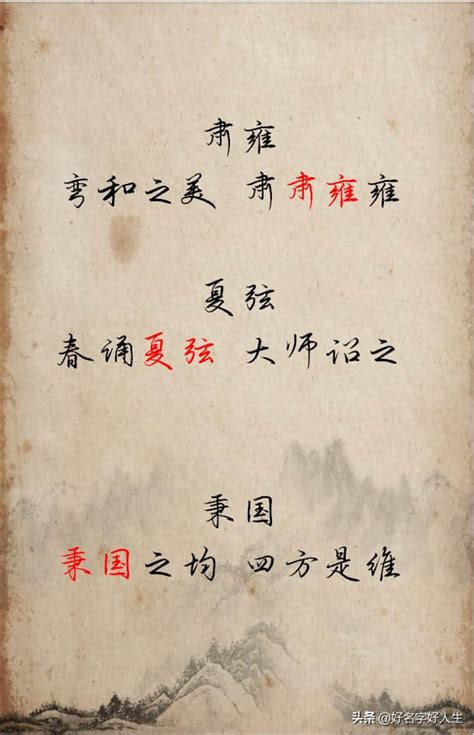 肃雍
弯和之美 肃肃雍雍
夏弦
春诵夏弦 大师诏之
秉国
秉国之均 四方是维
头条 @好名字好人生